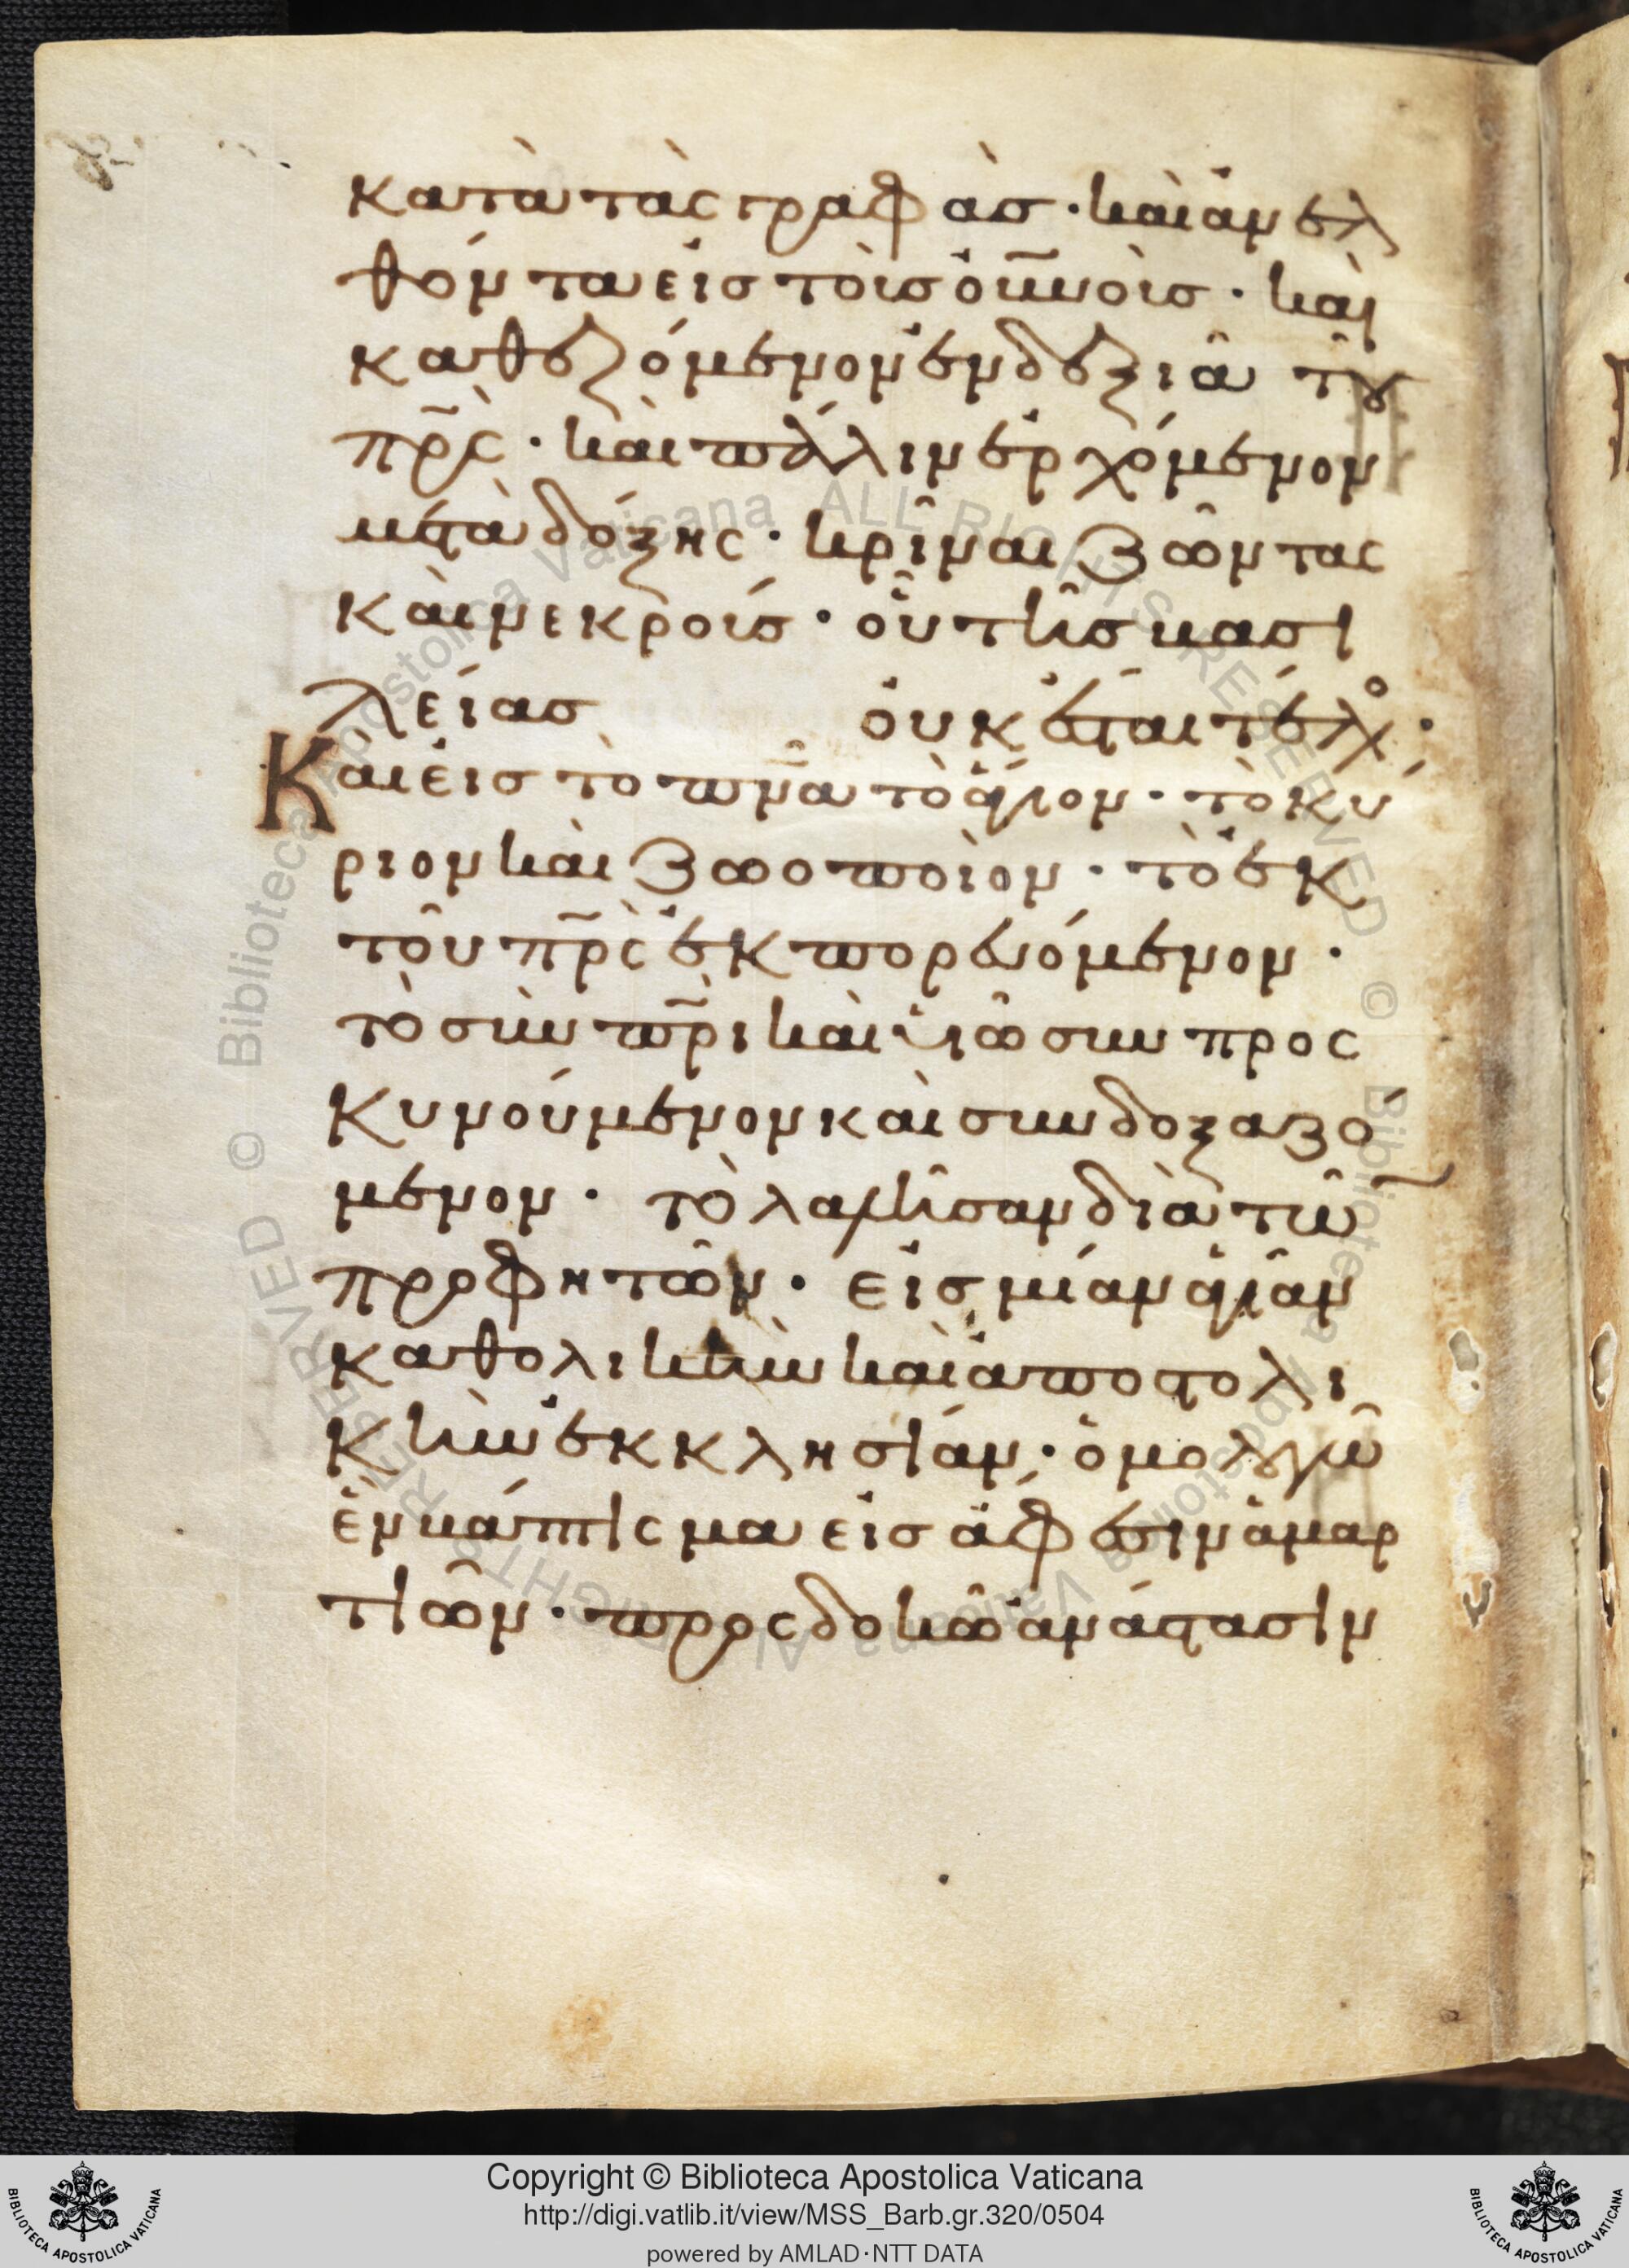 κατὰ τὰς γραφὰσ · καὶ ἀνελ
θόντα εἰσ τοὶσ οὐ̅νοὶσ · καὶ
καθεζόμενον ἐν δεξιᾶ τοῦ
πρ̅ς · καὶ πάλιν ἐρχόμενον
μετὰ δόξης · κρῖναι ζῶντας
καὶ νεκροίσ · οὗ τῆσ βασι
λείασ οὐκ ἔσται τέλο ·
Καὶ εἰσ τὸ πν̅α τὸ ἅγιον · τὸ κύ
ριον καὶ ζωοποὶον · τὸ ἐκ
τοῦ πρ̅ς ἐκπορευόμενον ·
τὸ σὺν πρ̅ι καὶ υἱῶ συν προς
κυνούμενον καὶ συνδοξαζό
μενον · τὸ λαλῆσαν διὰ τῶ
προφητῶν · εἰσ μίαν ἁγίαν
καθολικὴν καὶ ἀποστολι
κὴν ἐκκλησίαν · ὁμολογῶ
ἑν βάπτισμα εἰσ ἄφεσιν ἁμαρ
τιῶν · προςδοκῶ ἀνάστασιν
Copyright © Biblioteca Apostolica Vaticana
http://digi.vatlib.it/view/MSS_Barb.gr.320/0504
powered by AMLAD·NTT DATA
BIBLIOTECA APOSTOLICA VATICANA
BIBLIOTECA APOSTOLICA VATICANA